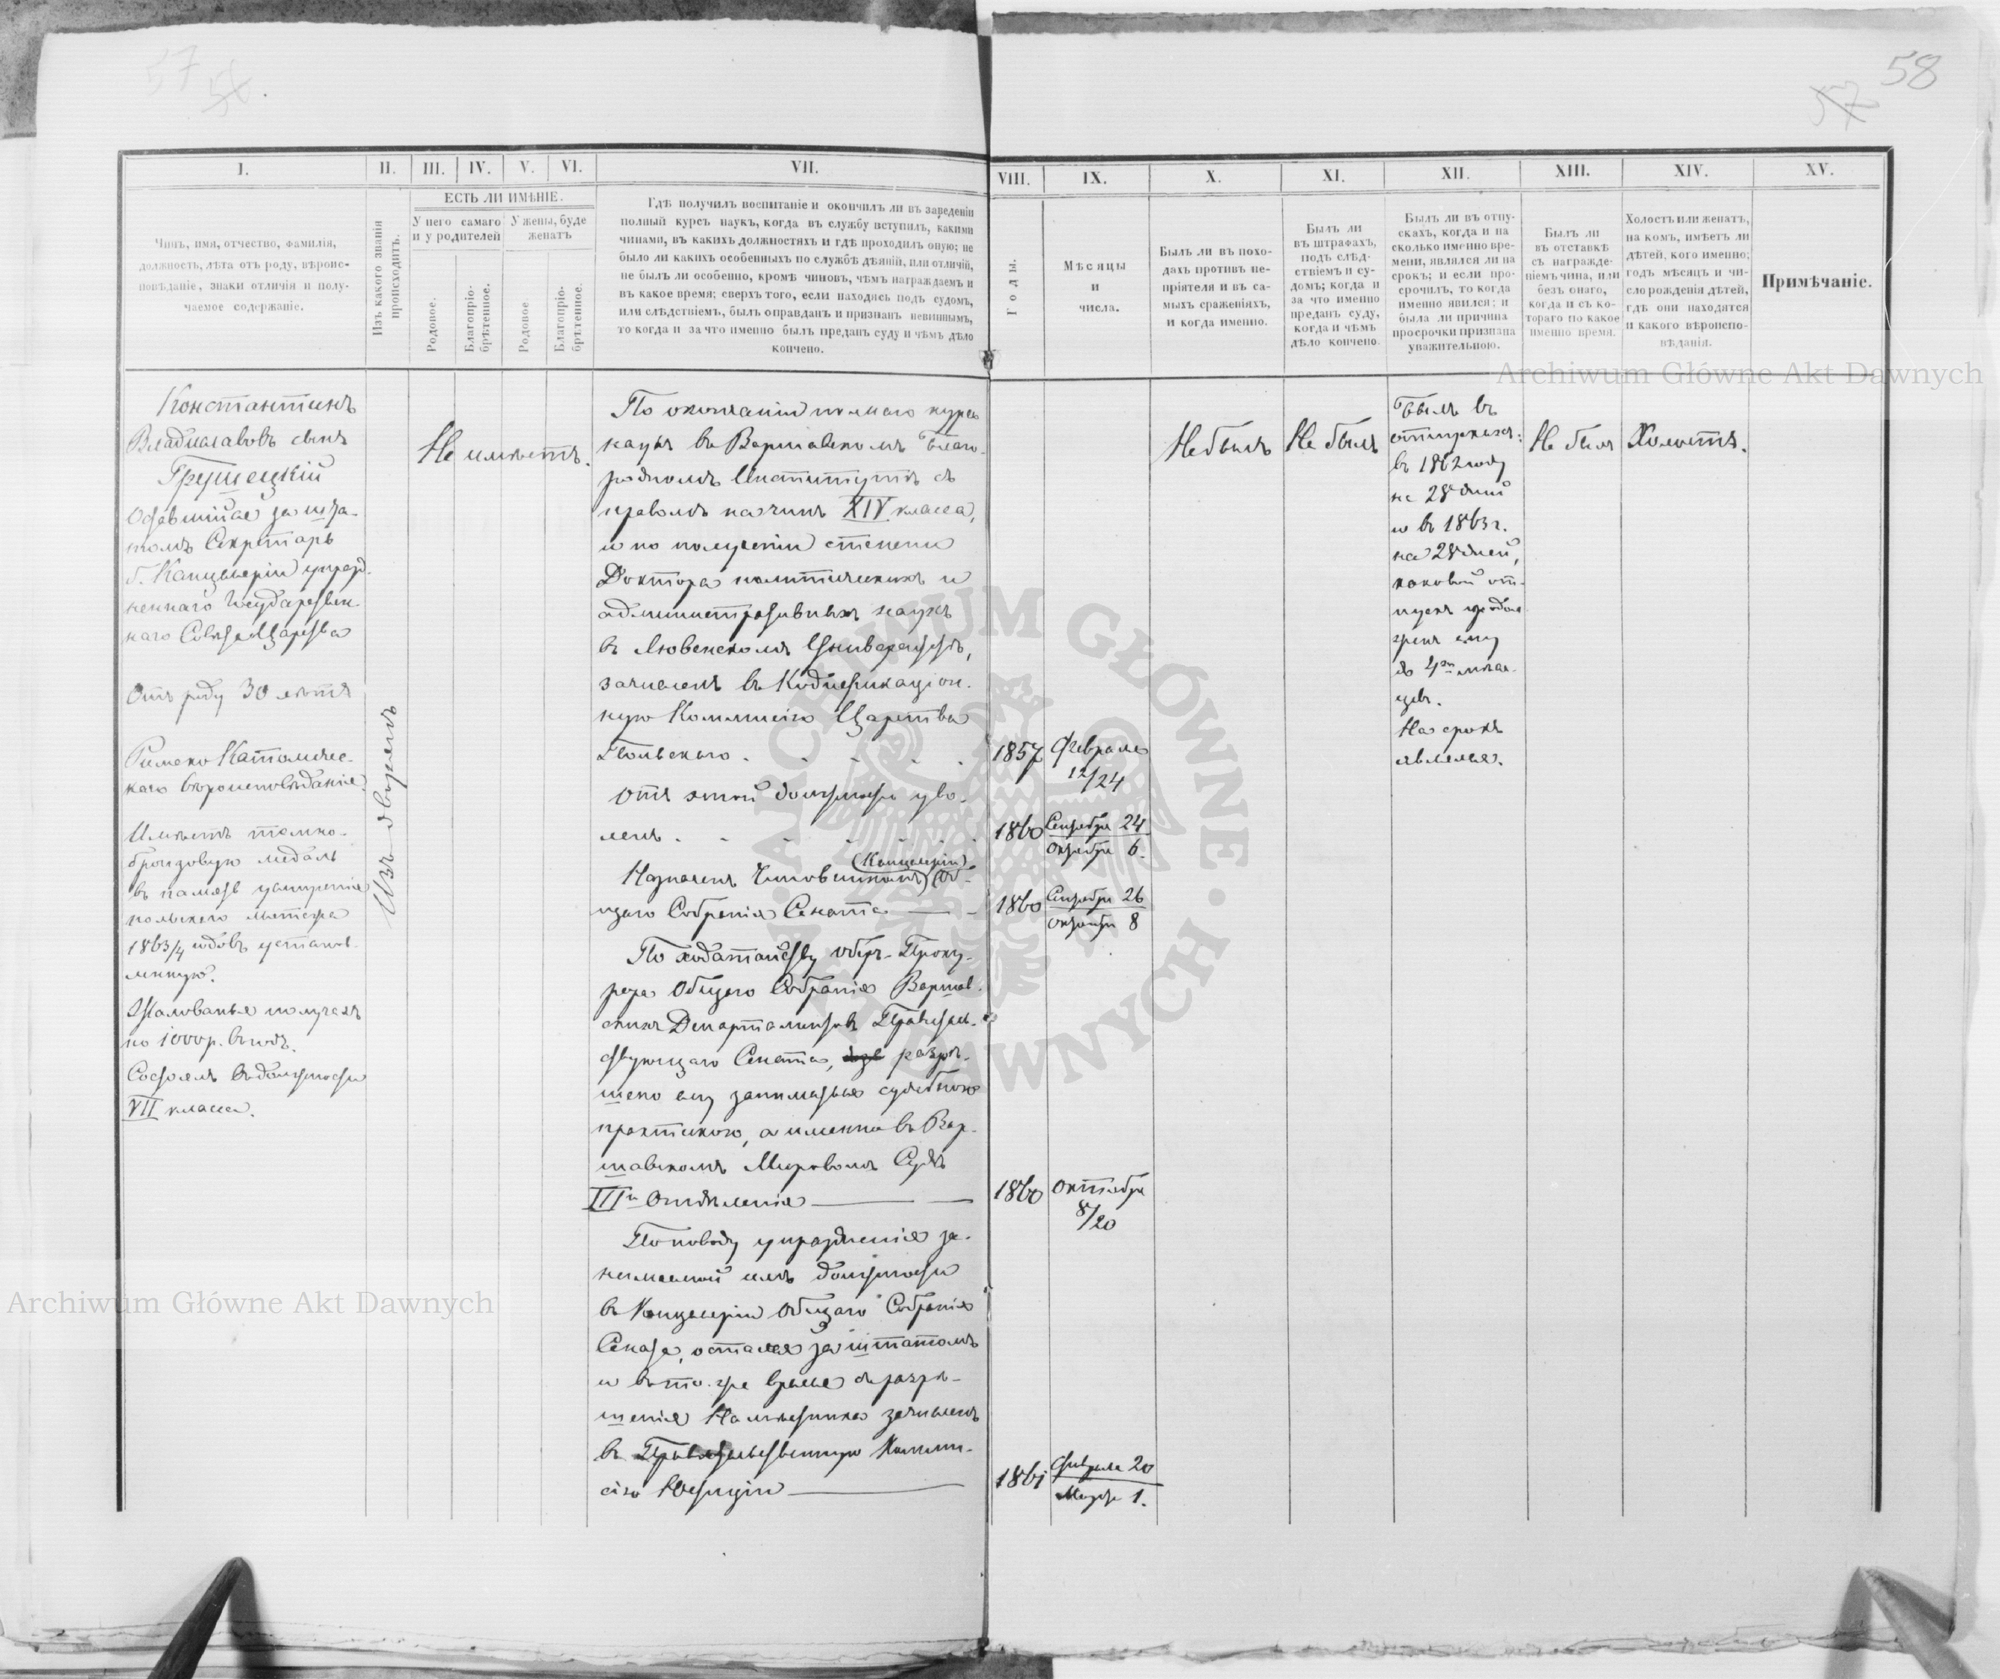 57
56.
58
57
I.
II.
III.
IV.
V.
VI.
VII.
VIII.
IX.
X.
XI.
XII.
XIII.
XIV.
XV.
Чинъ, имя, отчество, фамилія,
должность, лѣта отъ роду, вѣроис-
повѣданіе, знаки отличія и полу-
чаемое содержаніе.
Изъ какого званія
происходитъ.
ЕСТЬ ЛИ ИМѢНІЕ.
У него самаго
и у родителей
У жены, буде
женатъ
Родовое.
Благопріо-
брѣтенное.
Родовое
Благопріо-
брѣтенное.
Гдѣ получилъ воспитаніе и окончилъ ли въ заведеніи
полный курсъ наукъ, когда въ службу вступилъ, какими
чинами, въ какихъ должностяхъ и гдѣ проходилъ оную; не
было ли какихъ особенныхъ по службѣ дѣяній, или отличій,
не былъ ли особенно, кромѣ чиновъ, чѣмъ награждаемъ и
въ какое время; сверхъ того, если находясь подъ судомъ,
или слѣдствіемъ, былъ оправданъ и признанъ невиннымъ,
то когда и за что именно былъ преданъ суду и чѣмъ дѣло
кончено.
Годы.
Мѣсяцы
и
числа.
Былъ ли въ похо-
дахъ противъ не-
пріятеля и въ са-
мыхъ сраженіяхъ,
и когда именно.
Былъ ли
въ штрафахъ,
подъ слѣд-
ствіемъ и су-
домъ; когда и
за что именно
преданъ суду,
когда и чѣмъ
дѣло кончено.
Былъ ли въ отпу-
скахъ, когда и на
сколько именно вре-
мени, являлся ли на
срокъ; и если про-
срочилъ, то когда
именно явился; и
была ли причина
просрочки признана
уважительною.
Былъ ли
въ отставкѣ
съ награжде-
ніемъ чина, или
безъ онаго,
когда и съ ко-
тораго по какое
именно время.
Холостъ или женатъ,
на комъ, имѣетъ ли
дѣтей, кого именно;
годъ мѣсяцъ и чи-
сло рожденія дѣтей,
гдѣ они находятся
и какого вѣроиспо-
вѣданія.
Примѣчаніе.
Константинъ
Владиславовъ сынъ
Грушецкій
Оставшійся за шта-
томъ Секретарь
б. Канцеляріи упразд-
неннаго Государствен-
наго Совѣта Царства
Отъ роду 30 лѣтъ
Римско Католичес-
каго вѣроисповѣданія.
Имѣетъ темно-
бронзовую медаль
въ память усмиренія
польскаго мятежа
1863/4 годовъ установ-
ленную.
Жалованья получалъ
по 1000 р. въ годъ.
Состоялъ въ должности
VII класса.
Изъ дворянъ
Не имѣетъ.
По окончаніи полнаго курса
наукъ въ Варшавскомъ Благо-
родномъ Институтѣ съ
правомъ на чинъ XIV класса,
и по полученіи степени
Доктора политическихъ и
административныхъ наукъ
въ Лювенскомъ Университетѣ,
зачисленъ въ Кодификаціон-
ную Коммисію Царства
Польскаго . . . . .
1857 Февраля
12/24
Отъ этой должности уво-
ленъ . . . . . .
1860 Сентября 24
Октября 6.
Назначенъ Чиновникомъ (Канцеляріи) Об-
щаго Собранія Сената
1860 Сентября 26
Октября 8
По ходатайству Оберъ-Проку-
рора Общаго Собранія Варшав-
скихъ Департаментовъ Правитель-
ствующаго Сената, разрѣ-
шено ему заниматься судебною
практикою, а именно въ Вар-
шавскомъ Мировомъ Судѣ
IIIго Отдѣленія
1860 Октября
8/20
По поводу упраздненія за-
нимаемой имъ должности
въ Канцеляріи Общаго Собранія
Сената, остался за штатомъ
и въ то-же время съ разрѣ-
шенія Намѣстника зачисленъ
въ Правительственную Комми-
сію Юстиціи
1861 Февраля 20
Марта 1.
Не былъ
Не былъ
Былъ въ
отпускахъ:
въ 1862 году
на 28 дней
и въ 1863 г.
на 28 дней,
каковой от-
пускъ продол-
женъ ему
до 4хъ мѣся-
цевъ.
На срокъ
явился.
Не былъ
Холостъ.
Archiwum Główne Akt Dawnych
Archiwum Główne Akt Dawnych
ARCHIWUM GŁÓWNE · AKT DAWNYCH ·